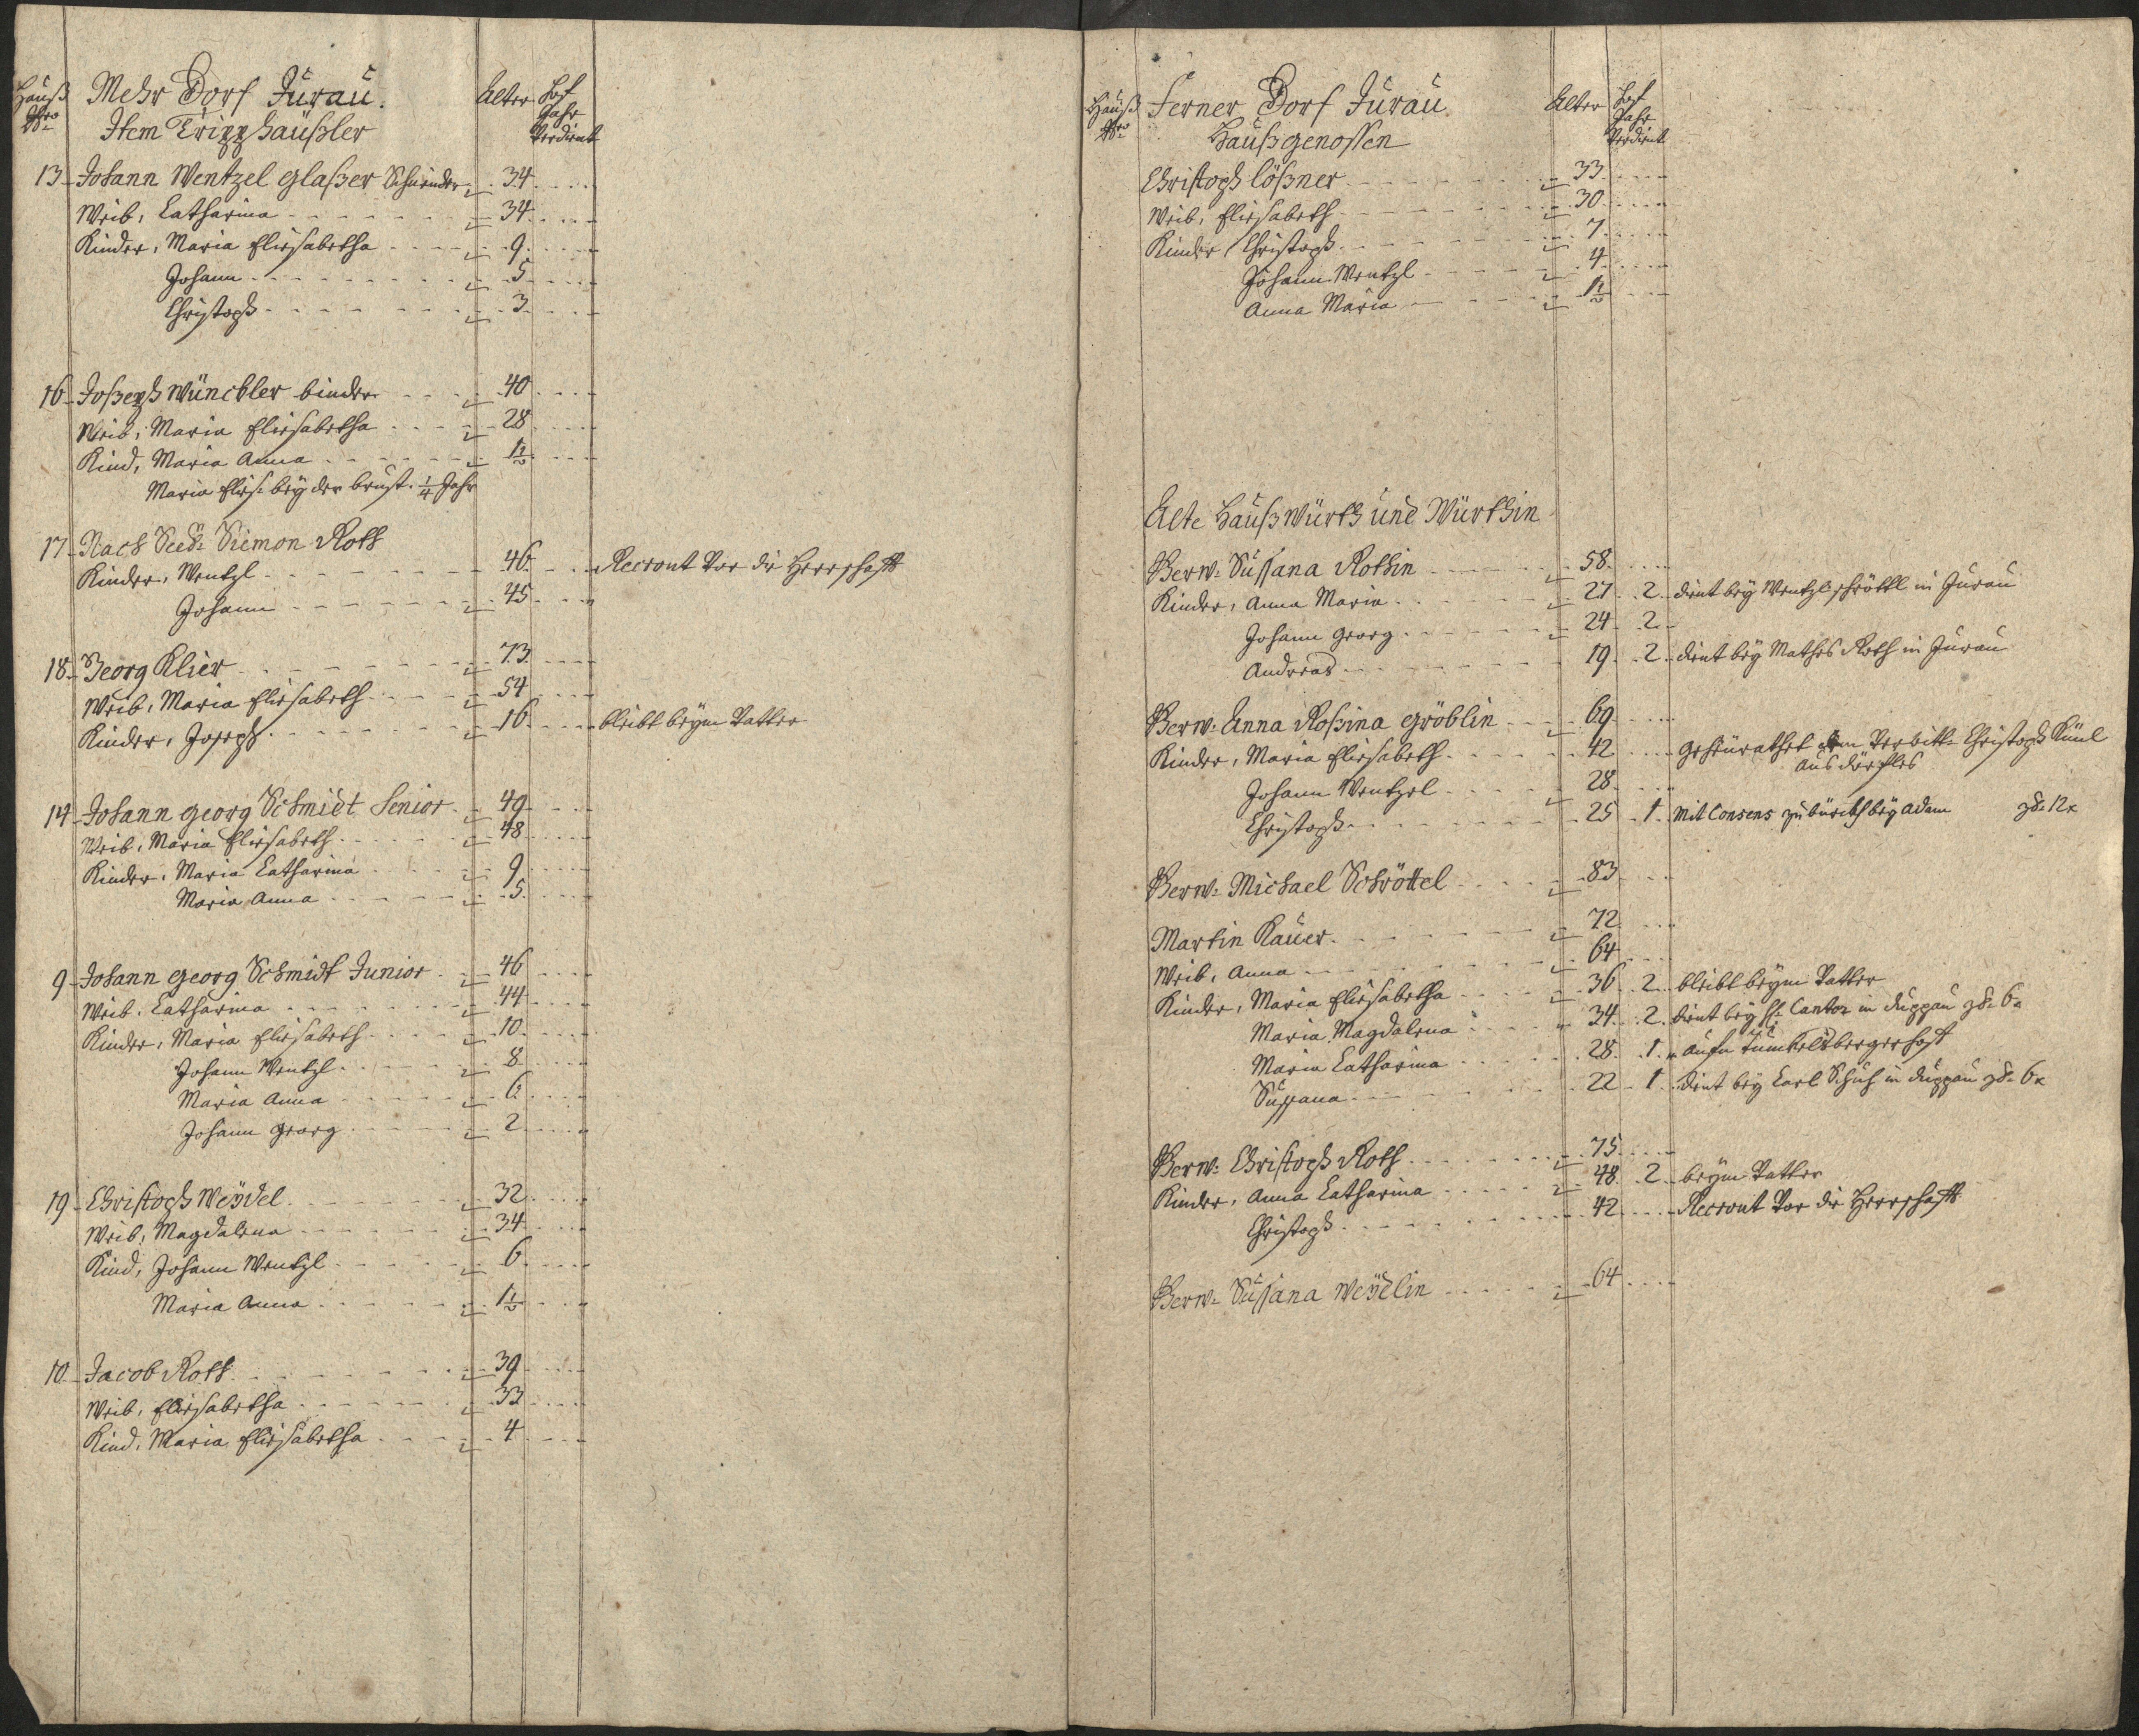 Hauß Nro Mehr Dorf Jurau. Alter Hof Jahr Verdient
Item Tripphäußler
13 Johann Wentzel Glaßer Schneider 34
Weib, Catharina 34
Kinder, Maria Eliesabetha 9
Johann 5
Christoph 3
16 Joßeph Wünckler binder 40
Weib, Maria Eliesabetha 28
Kind, Maria Anna 1½
Maria Elies: bey der brust. ¼ Jahr
17 Nach Seel: Siemon Roth
Kinder, Wentzl 46 Recrout Vor die Herrschafft
Johann 45
18 Georg Klier 73
Weib, Maria Eliesabeth 54
Kinder, Joseph 16 bleibt beym Vatter
14 Johann Georg Schmidt Senior 49
Weib, Maria Eliesabeth 48
Kinder, Maria Catharina 9
Maria Anna 5
9 Johann Georg Schmidt Junior 46
Weib, Catharina 44
Kinder, Maria Eliesabeth 10
Johann Wentzl 8
Maria Anna 6
Johann Georg 2
19 Christoph Weydel 32
Weib, Magdalena 34
Kind, Johann Wentzl 6
Maria Anna 1½
10 Jacob Roth 39
Weib, Eliesabetha 33
Kind, Maria Eliesabetha 4
Hauß Nro Ferner Dorf Jurau Alter Hof Jahr Verdient
Haußgenossen
Christoph Lößner 33
Weib, Eliesabeth 30
Kinder Christoph 7
Johann Wentzl 4
Anna Maria 1½
Alte Haußwürth und Würthin
Verw: Sussana Rothin 58
Kinder, Anna Maria 27 2 dient bey Wentzl Schröttl in Jurau
Johann Georg 24 2
Andreas 19 2 dient bey Mathes Roth in Jurau
Verw: Anna Roßina Gröblin 69
Kinder, Maria Eliesabeth 42 geheurathet Christoph
aus dörfles
Johann Wentzel 28
Christoph 25 1 Mit Consens bey Adam 12x
Verw: Michael Schröttel 83
Martin Kauer 72
Weib, Anna 64
Kinder, Maria Eliesabetha 36 2 bleibt beym Vatter
Maria Magdalena 34 2 dient bey H: Cantor in Duppau 6x
Maria Catharina 28 1
Sussana 22 1 dient bey Carl Schuh in Duppau 6x
Verw: Christoph Roth 75
Kinder, Anna Catharina 48 2 beym Vatter
Christoph 42 Recrout Vor die Herrschafft
Verw: Sussana Weydlin 64